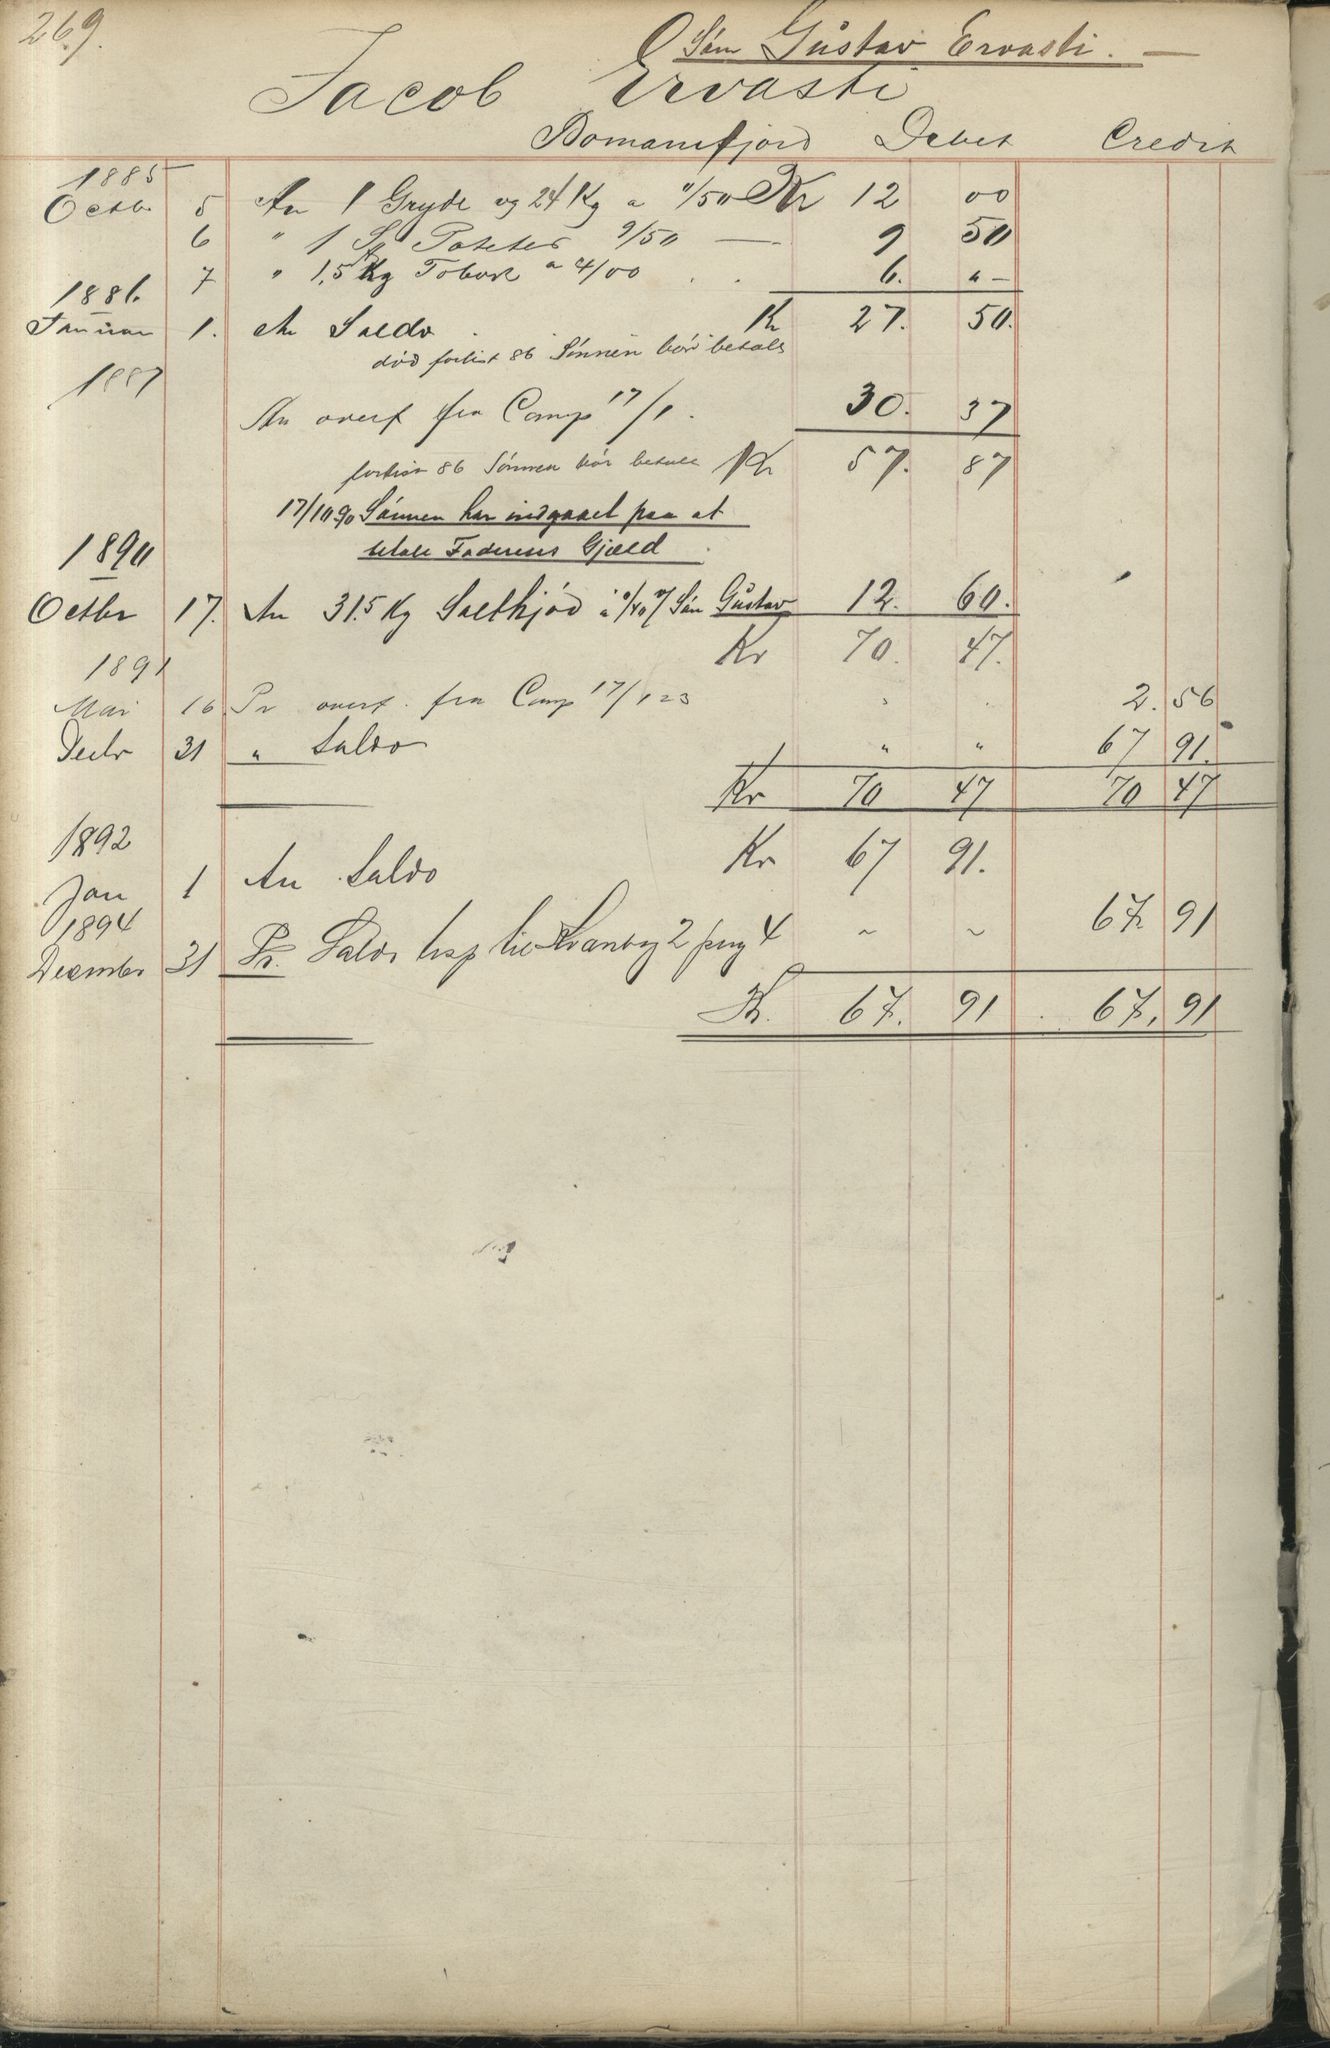 269.
Søn Gustav Ervasti. —
Jacob Ervasti
Bomansfjord Debet Credit
1885
Octb. 5 An 1 Gryde og 24 Kg a "/50 Kr 12 00
6 " 1 Poteter 9/50 — 9 50
7 " 1,5 Kg Tobak a 4/00 . . 6. " —
1886.
Januar 1. An Saldo Kr 27. 50.
død forlist 86 Sønnen bør betale
1887
An overf fra Comp 17/1. 30. 37
forlist 86 Sønnen bør betale Kr 57. 87
17/10 90 Sønnen har indgaaet paa at
betale Faderens Gjæld
1890
Octbr 17. An 31.5 Kg Saltkjød a "/40 Søn Gustav 12. 60.
Kr 70. 47.
1891
Mai 16 Pr overf. fra Comp 17/123 " . 2. 56
Decbr 31 " Saldo " " 67 91.
Kr 70 47 70 47
1892
Jan 1 An Saldo Kr 67 91.
1894
December 31 Pr. Saldo til 2 pag 4 ~ ~ 67. 91
Kr. 67. 91 67, 91